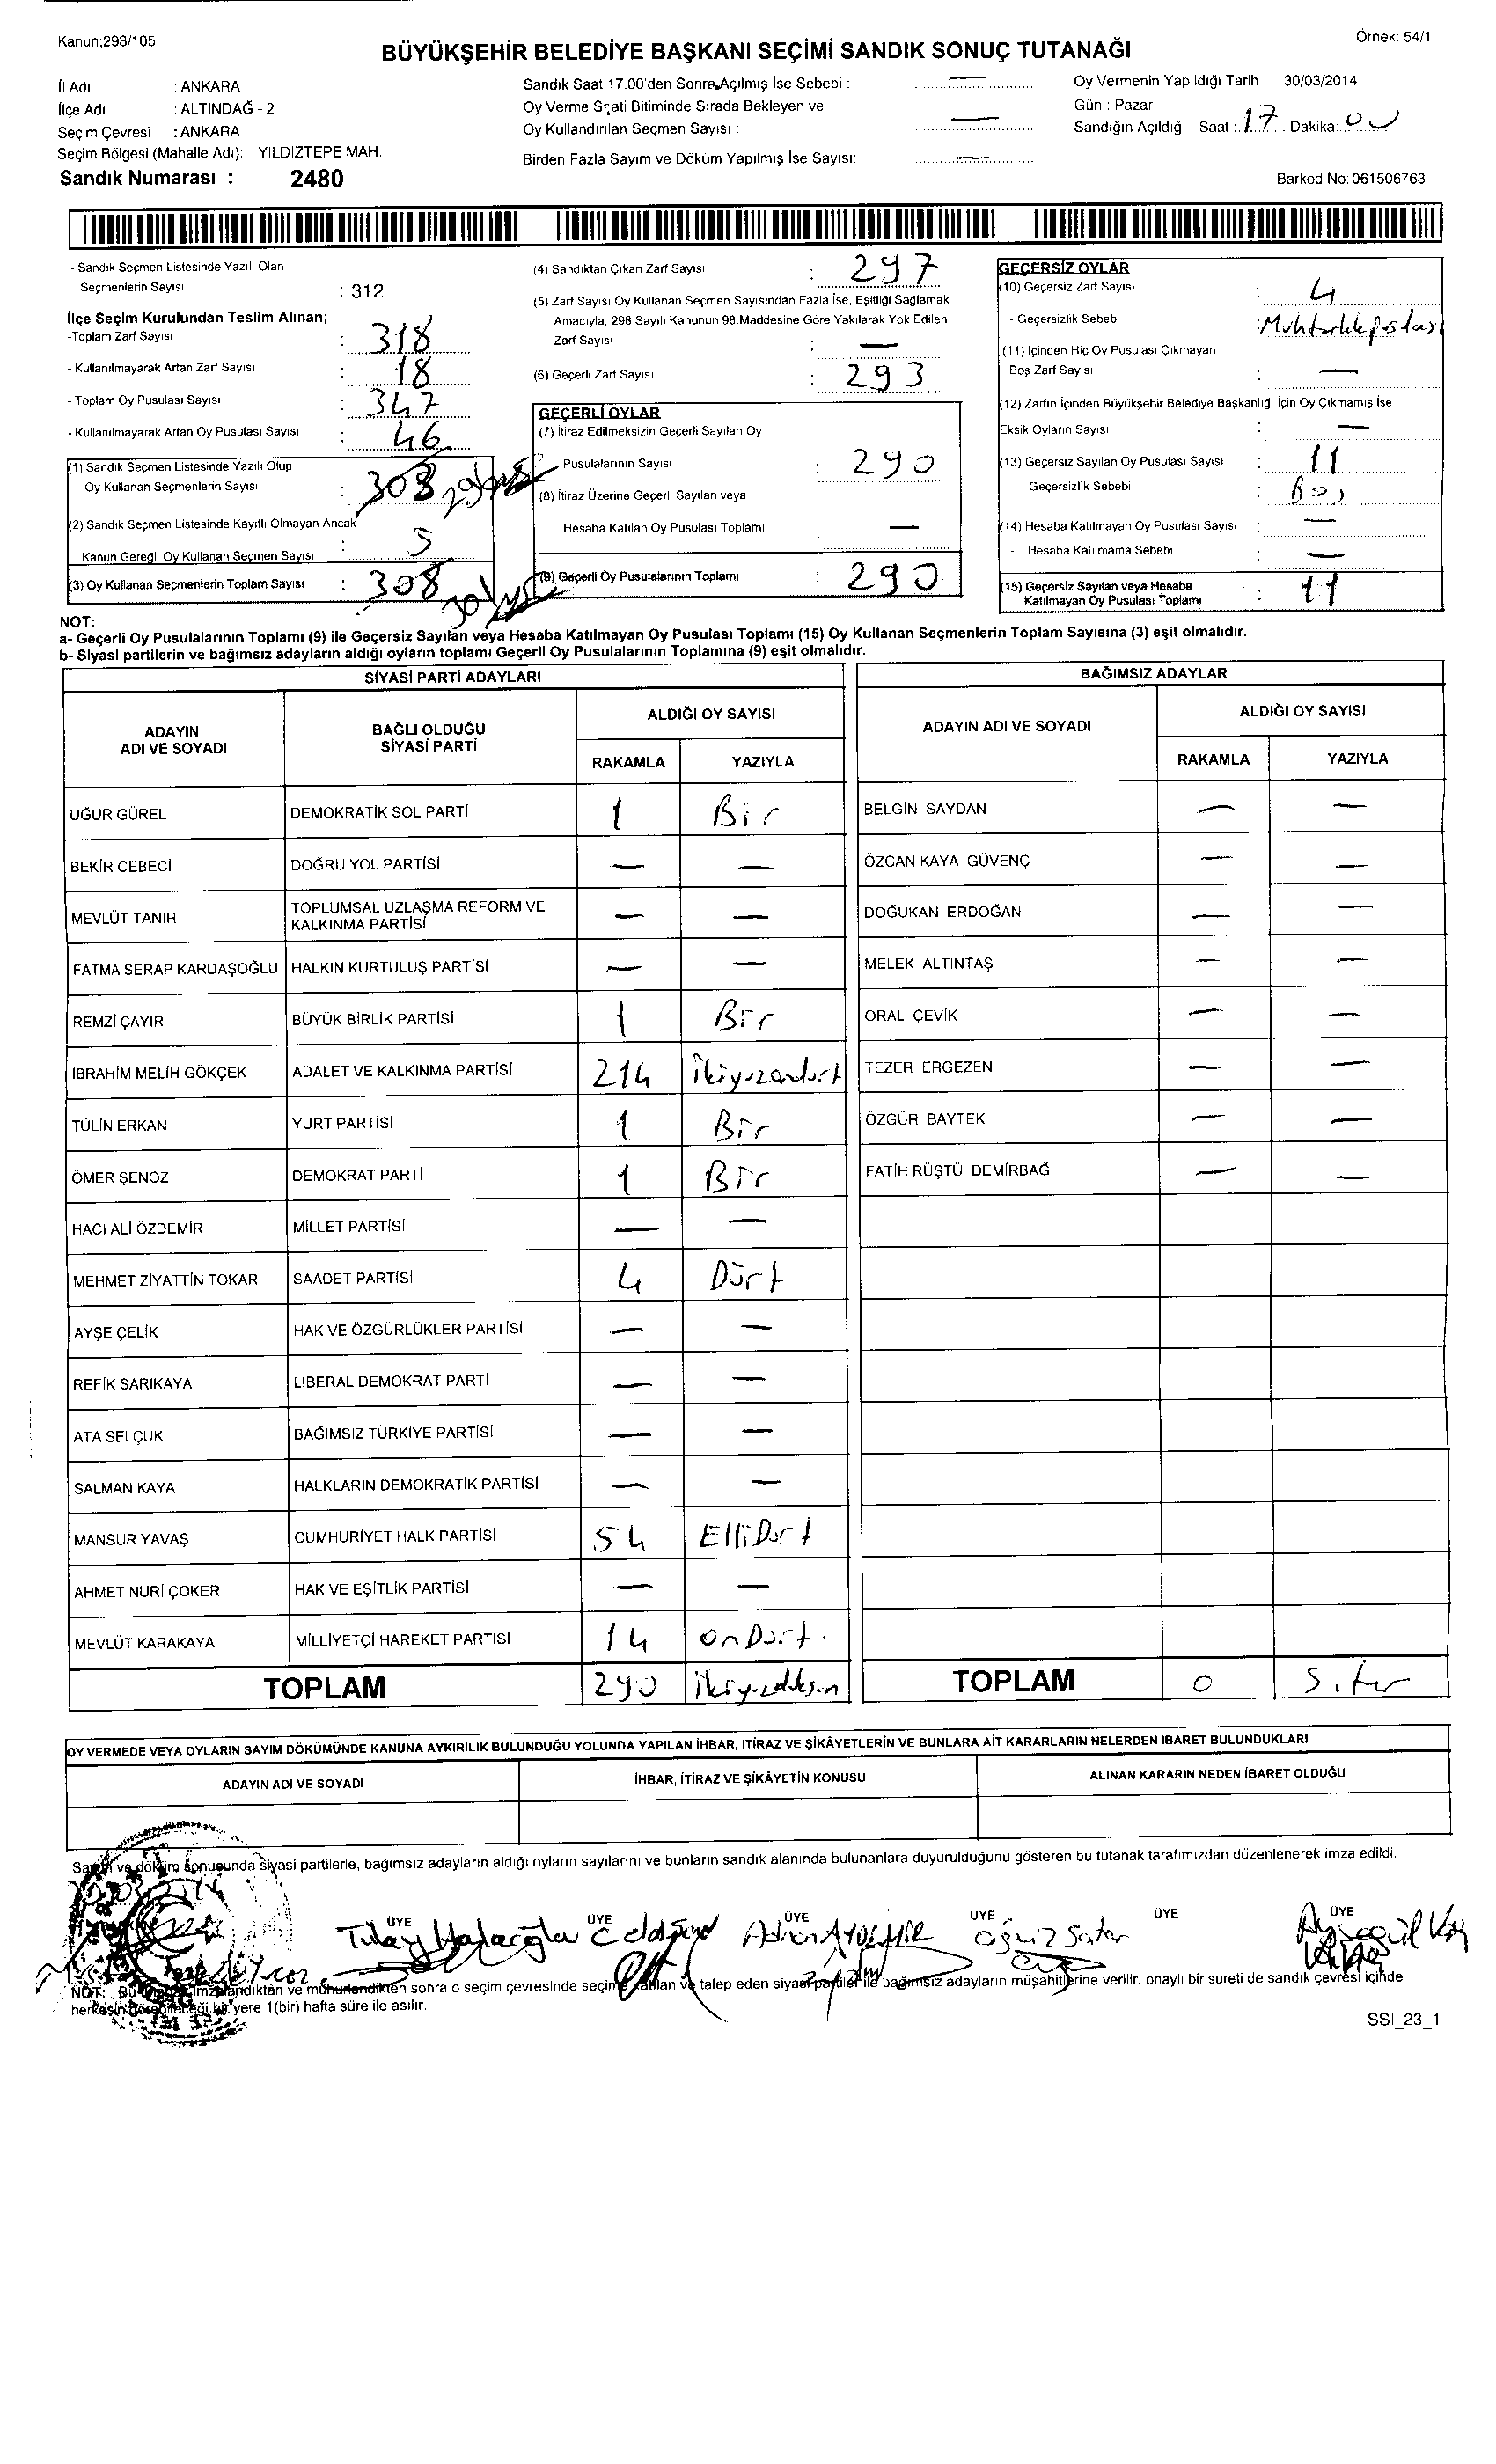 Kanun;298/105
Örnek: 54/1
BÜYÜKŞEHİR BELEDİYE BAŞKANI SEÇİMİ SANDIK SONUÇ TUTANAĞI
İl Adı : ANKARA
İlçe Adı : ALTINDAĞ - 2
Seçim Çevresi : ANKARA
Seçim Bölgesi (Mahalle Adı): YILDIZTEPE MAH.
Sandık Numarası : 2480
Sandık Saat 17.00'den Sonra Açılmış İse Sebebi : —
Oy Verme Saati Bitiminde Sırada Bekleyen ve
Oy Kullandırılan Seçmen Sayısı : —
Birden Fazla Sayım ve Döküm Yapılmış İse Sayısı: —
Oy Vermenin Yapıldığı Tarih : 30/03/2014
Gün : Pazar
Sandığın Açıldığı Saat : 17 Dakika: 00
Barkod No: 061506763
- Sandık Seçmen Listesinde Yazılı Olan
Seçmenlerin Sayısı : 312
İlçe Seçim Kurulundan Teslim Alınan;
-Toplam Zarf Sayısı : 318
- Kullanılmayarak Artan Zarf Sayısı : 18
- Toplam Oy Pusulası Sayısı : 347
- Kullanılmayarak Artan Oy Pusulası Sayısı : 46
(1) Sandık Seçmen Listesinde Yazılı Olup
Oy Kullanan Seçmenlerin Sayısı : 308
(2) Sandık Seçmen Listesinde Kayıtlı Olmayan Ancak
Kanun Gereği Oy Kullanan Seçmen Sayısı : 5
(3) Oy Kullanan Seçmenlerin Toplam Sayısı : 308
(4) Sandıktan Çıkan Zarf Sayısı : 297
(5) Zarf Sayısı Oy Kullanan Seçmen Sayısından Fazla İse, Eşitliği Sağlamak
Amacıyla; 298 Sayılı Kanunun 98.Maddesine Göre Yakılarak Yok Edilen
Zarf Sayısı : —
(6) Geçerli Zarf Sayısı : 293
GEÇERLİ OYLAR
(7) İtiraz Edilmeksizin Geçerli Sayılan Oy
Pusulalarının Sayısı : 290
(8) İtiraz Üzerine Geçerli Sayılan veya
Hesaba Katılan Oy Pusulası Toplamı : —
(9) Geçerli Oy Pusulalarının Toplamı : 290
GEÇERSİZ OYLAR
(10) Geçersiz Zarf Sayısı : 4
- Geçersizlik Sebebi :
(11) İçinden Hiç Oy Pusulası Çıkmayan
Boş Zarf Sayısı : —
(12) Zarfın İçinden Büyükşehir Belediye Başkanlığı İçin Oy Çıkmamış İse
Eksik Oyların Sayısı : —
(13) Geçersiz Sayılan Oy Pusulası Sayısı : 11
- Geçersizlik Sebebi :
(14) Hesaba Katılmayan Oy Pusulası Sayısı : —
- Hesaba Katılmama Sebebi : —
(15) Geçersiz Sayılan veya Hesaba
Katılmayan Oy Pusulası Toplamı : 11
NOT:
a- Geçerli Oy Pusulalarının Toplamı (9) ile Geçersiz Sayılan veya Hesaba Katılmayan Oy Pusulası Toplamı (15) Oy Kullanan Seçmenlerin Toplam Sayısına (3) eşit olmalıdır.
b- Siyasi partilerin ve bağımsız adayların aldığı oyların toplamı Geçerli Oy Pusulalarının Toplamına (9) eşit olmalıdır.
SİYASİ PARTİ ADAYLARI
ADAYIN ADI VE SOYADI BAĞLI OLDUĞU SİYASİ PARTİ ALDIĞI OY SAYISI
RAKAMLA YAZIYLA
UĞUR GÜREL DEMOKRATİK SOL PARTİ 1 Bir
BEKİR CEBECİ DOĞRU YOL PARTİSİ — —
MEVLÜT TANIR TOPLUMSAL UZLAŞMA REFORM VE KALKINMA PARTİSİ — —
FATMA SERAP KARDAŞOĞLU HALKIN KURTULUŞ PARTİSİ — —
REMZİ ÇAYIR BÜYÜK BİRLİK PARTİSİ 1 Bir
İBRAHİM MELİH GÖKÇEK ADALET VE KALKINMA PARTİSİ 214 ikiyüzondört
TÜLİN ERKAN YURT PARTİSİ 1 Bir
ÖMER ŞENÖZ DEMOKRAT PARTİ 1 Bir
HACI ALİ ÖZDEMİR MİLLET PARTİSİ — —
MEHMET ZİYATTİN TOKAR SAADET PARTİSİ 4 Dört
AYŞE ÇELİK HAK VE ÖZGÜRLÜKLER PARTİSİ — —
REFİK SARIKAYA LİBERAL DEMOKRAT PARTİ — —
ATA SELÇUK BAĞIMSIZ TÜRKİYE PARTİSİ — —
SALMAN KAYA HALKLARIN DEMOKRATİK PARTİSİ — —
MANSUR YAVAŞ CUMHURİYET HALK PARTİSİ 54 ElliDört
AHMET NURİ ÇOKER HAK VE EŞİTLİK PARTİSİ — —
MEVLÜT KARAKAYA MİLLİYETÇİ HAREKET PARTİSİ 14 onDört.
TOPLAM 290
BAĞIMSIZ ADAYLAR
ADAYIN ADI VE SOYADI ALDIĞI OY SAYISI
RAKAMLA YAZIYLA
BELGİN SAYDAN — —
ÖZCAN KAYA GÜVENÇ — —
DOĞUKAN ERDOĞAN — —
MELEK ALTINTAŞ — —
ORAL ÇEVİK — —
TEZER ERGEZEN — —
ÖZGÜR BAYTEK — —
FATİH RÜŞTÜ DEMİRBAĞ — —
TOPLAM 0 Sıfır
OY VERMEDE VEYA OYLARIN SAYIM DÖKÜMÜNDE KANUNA AYKIRILIK BULUNDUĞU YOLUNDA YAPILAN İHBAR, İTİRAZ VE ŞİKÂYETLERİN VE BUNLARA AİT KARARLARIN NELERDEN İBARET BULUNDUKLARI
ADAYIN ADI VE SOYADI İHBAR, İTİRAZ VE ŞİKÂYETİN KONUSU ALINAN KARARIN NEDEN İBARET OLDUĞU
Sayım ve döküm sonucunda siyasi partilerle, bağımsız adayların aldığı oyların sayılarını ve bunların sandık alanında bulunanlara duyurulduğunu gösteren bu tutanak tarafımızdan düzenlenerek imza edildi.
ÜYE ÜYE ÜYE ÜYE ÜYE ÜYE
Tülay Adnan Oğuz Ayşegül
NOT: Bu imzalandıktan ve mühürlendikten sonra o seçim çevresinde seçime katılan ve talep eden siyasi partiler ile bağımsız adayların müşahitlerine verilir, onaylı bir sureti de sandık çevresi içinde
herkesin görebileceği bir yere 1(bir) hafta süre ile asılır.
SSI_23_1